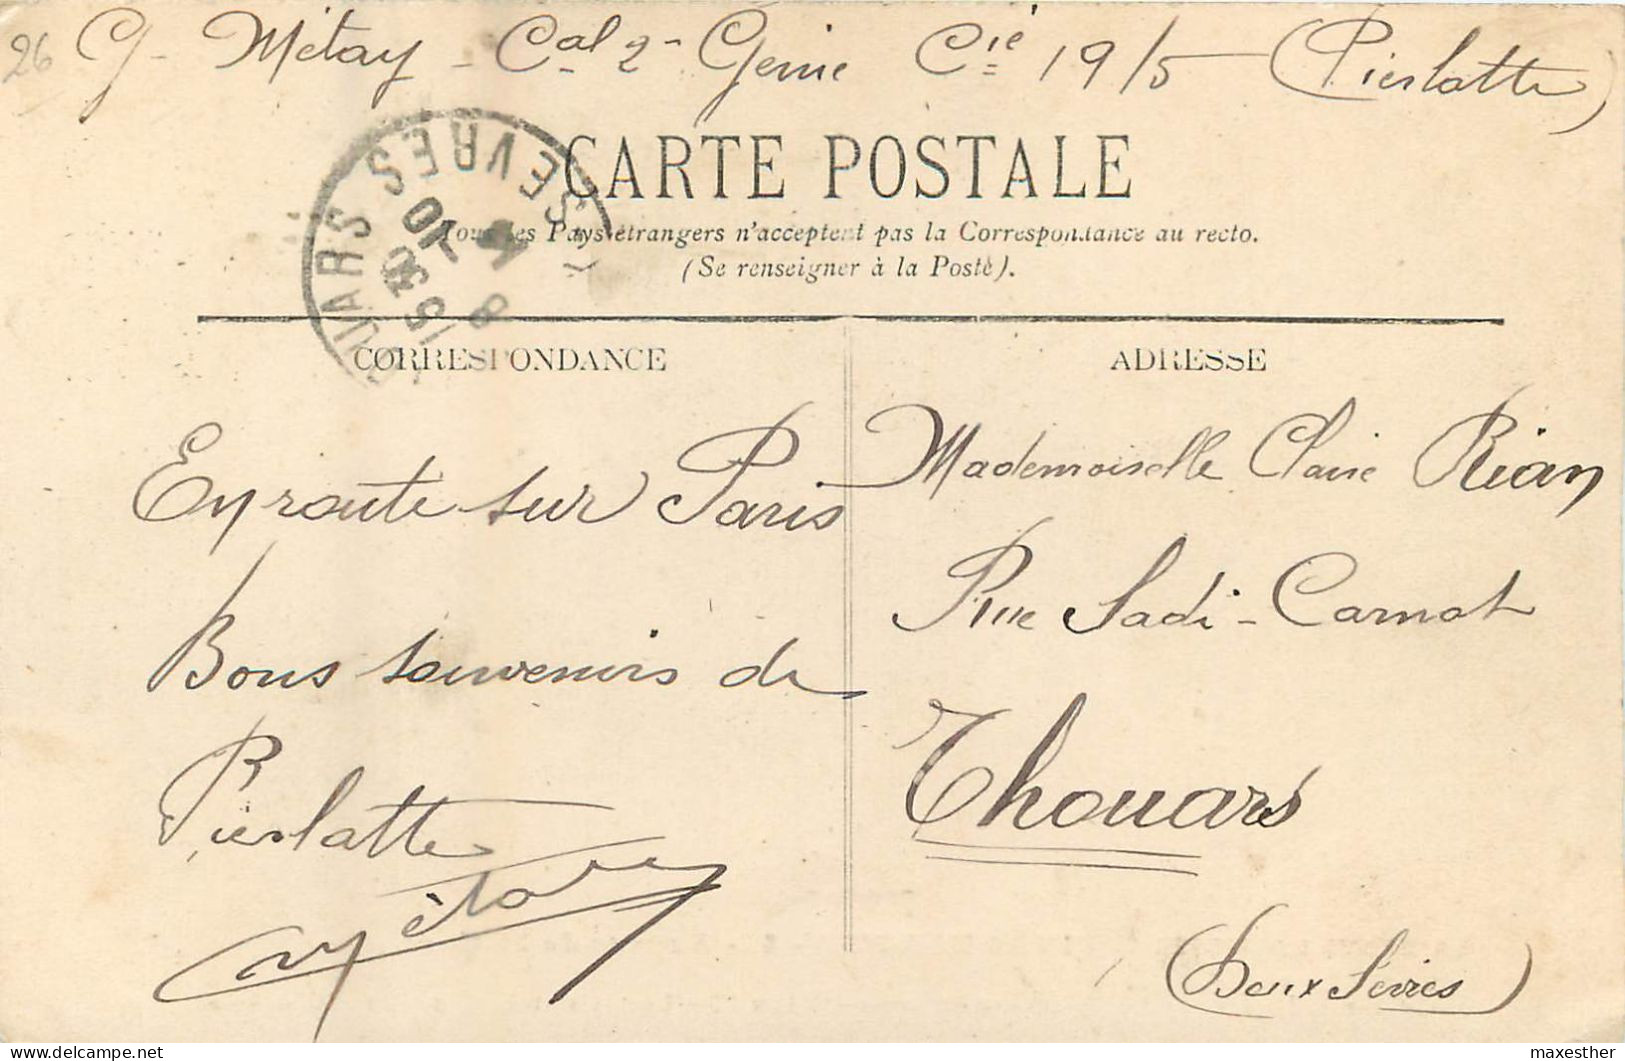 26 G. Métay - Cal 2e Génie Cie 19/5 (Pierlatte)
CARTE POSTALE
Tous les Pays étrangers n'acceptent pas la Correspondance au recto.
(Se renseigner à la Poste).
THOUARS
SEVRES
15 30
8
10
CORRESPONDANCE
ADRESSE
En route sur Paris
Bons souvenirs de
Pierlatte
Métay
Mademoiselle Claire Rian
Rue Sadi-Carnot
Thouars
(Deux Sèvres)
maxesther